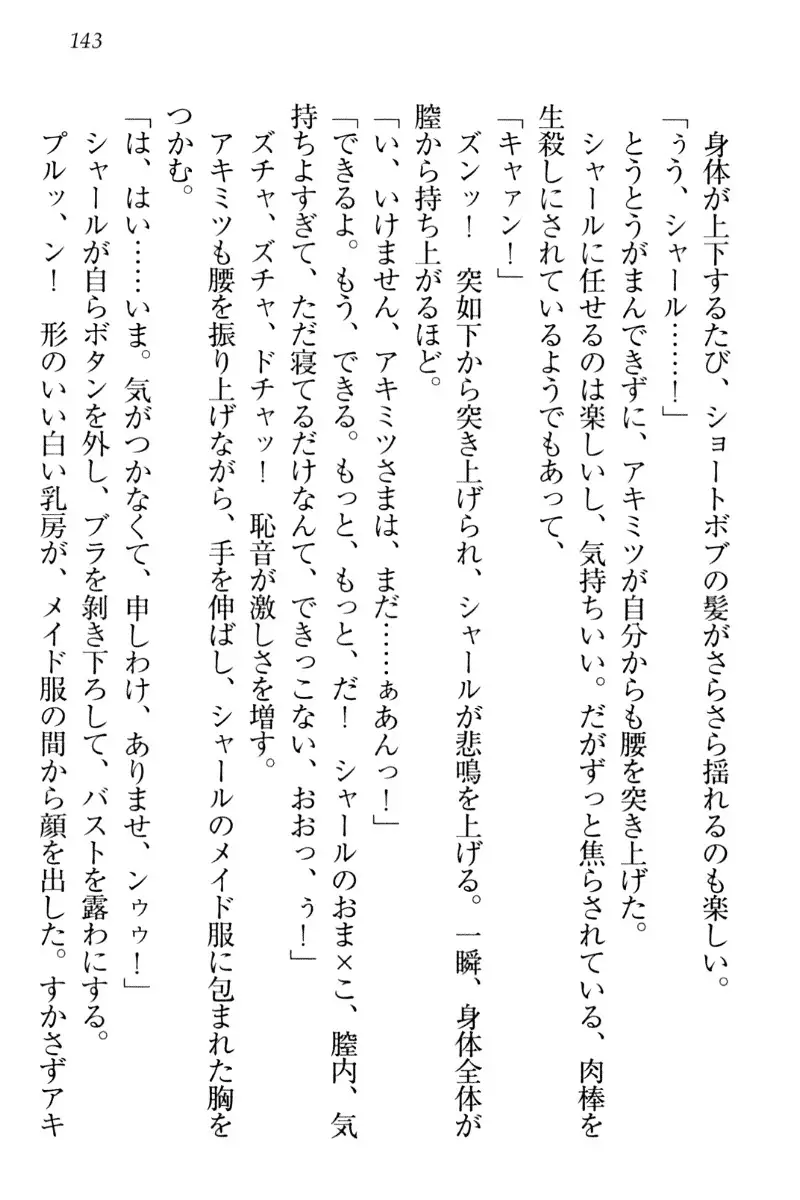 143
身体が上下するたび、ショートボブの髪がさらさら揺れるのも楽しい。
「ぅう、シャール……！」
とうとうがまんできずに、アキミツが自分からも腰を突き上げた。
シャールに任せるのは楽しいし、気持ちいい。だがずっと焦らされている、肉棒を
生殺しにされているようでもあって、
「キャァン！」
ズンッ！　突如下から突き上げられ、シャールが悲鳴を上げる。一瞬、身体全体が
膣から持ち上がるほど。
「い、いけません、アキミツさまは、まだ……ぁあんっ！」
「できるよ。もう、できる。もっと、もっと、だ！　シャールのおま×こ、膣内、気
持ちよすぎて、ただ寝てるだけなんて、できっこない、おおっ、ぅ！」
ズチャ、ズチャ、ドチャッ！　恥音が激しさを増す。
アキミツも腰を振り上げながら、手を伸ばし、シャールのメイド服に包まれた胸を
つかむ。
「は、はい……いま。気がつかなくて、申しわけ、ありませ、ンゥゥ！」
シャールが自らボタンを外し、ブラを剥き下ろして、バストを露わにする。
プルッ、ン！　形のいい白い乳房が、メイド服の間から顔を出した。すかさずアキ